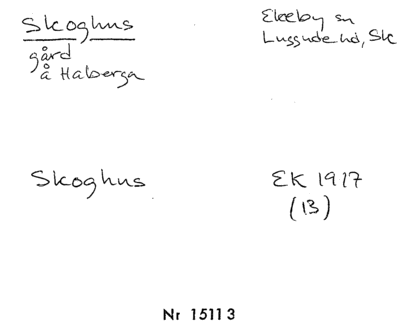 Skoghus
gård
å Halberga
Ekeby sn
Luggude hd, Sk
Skoghus
EK 1917
(13)
Nr 15113